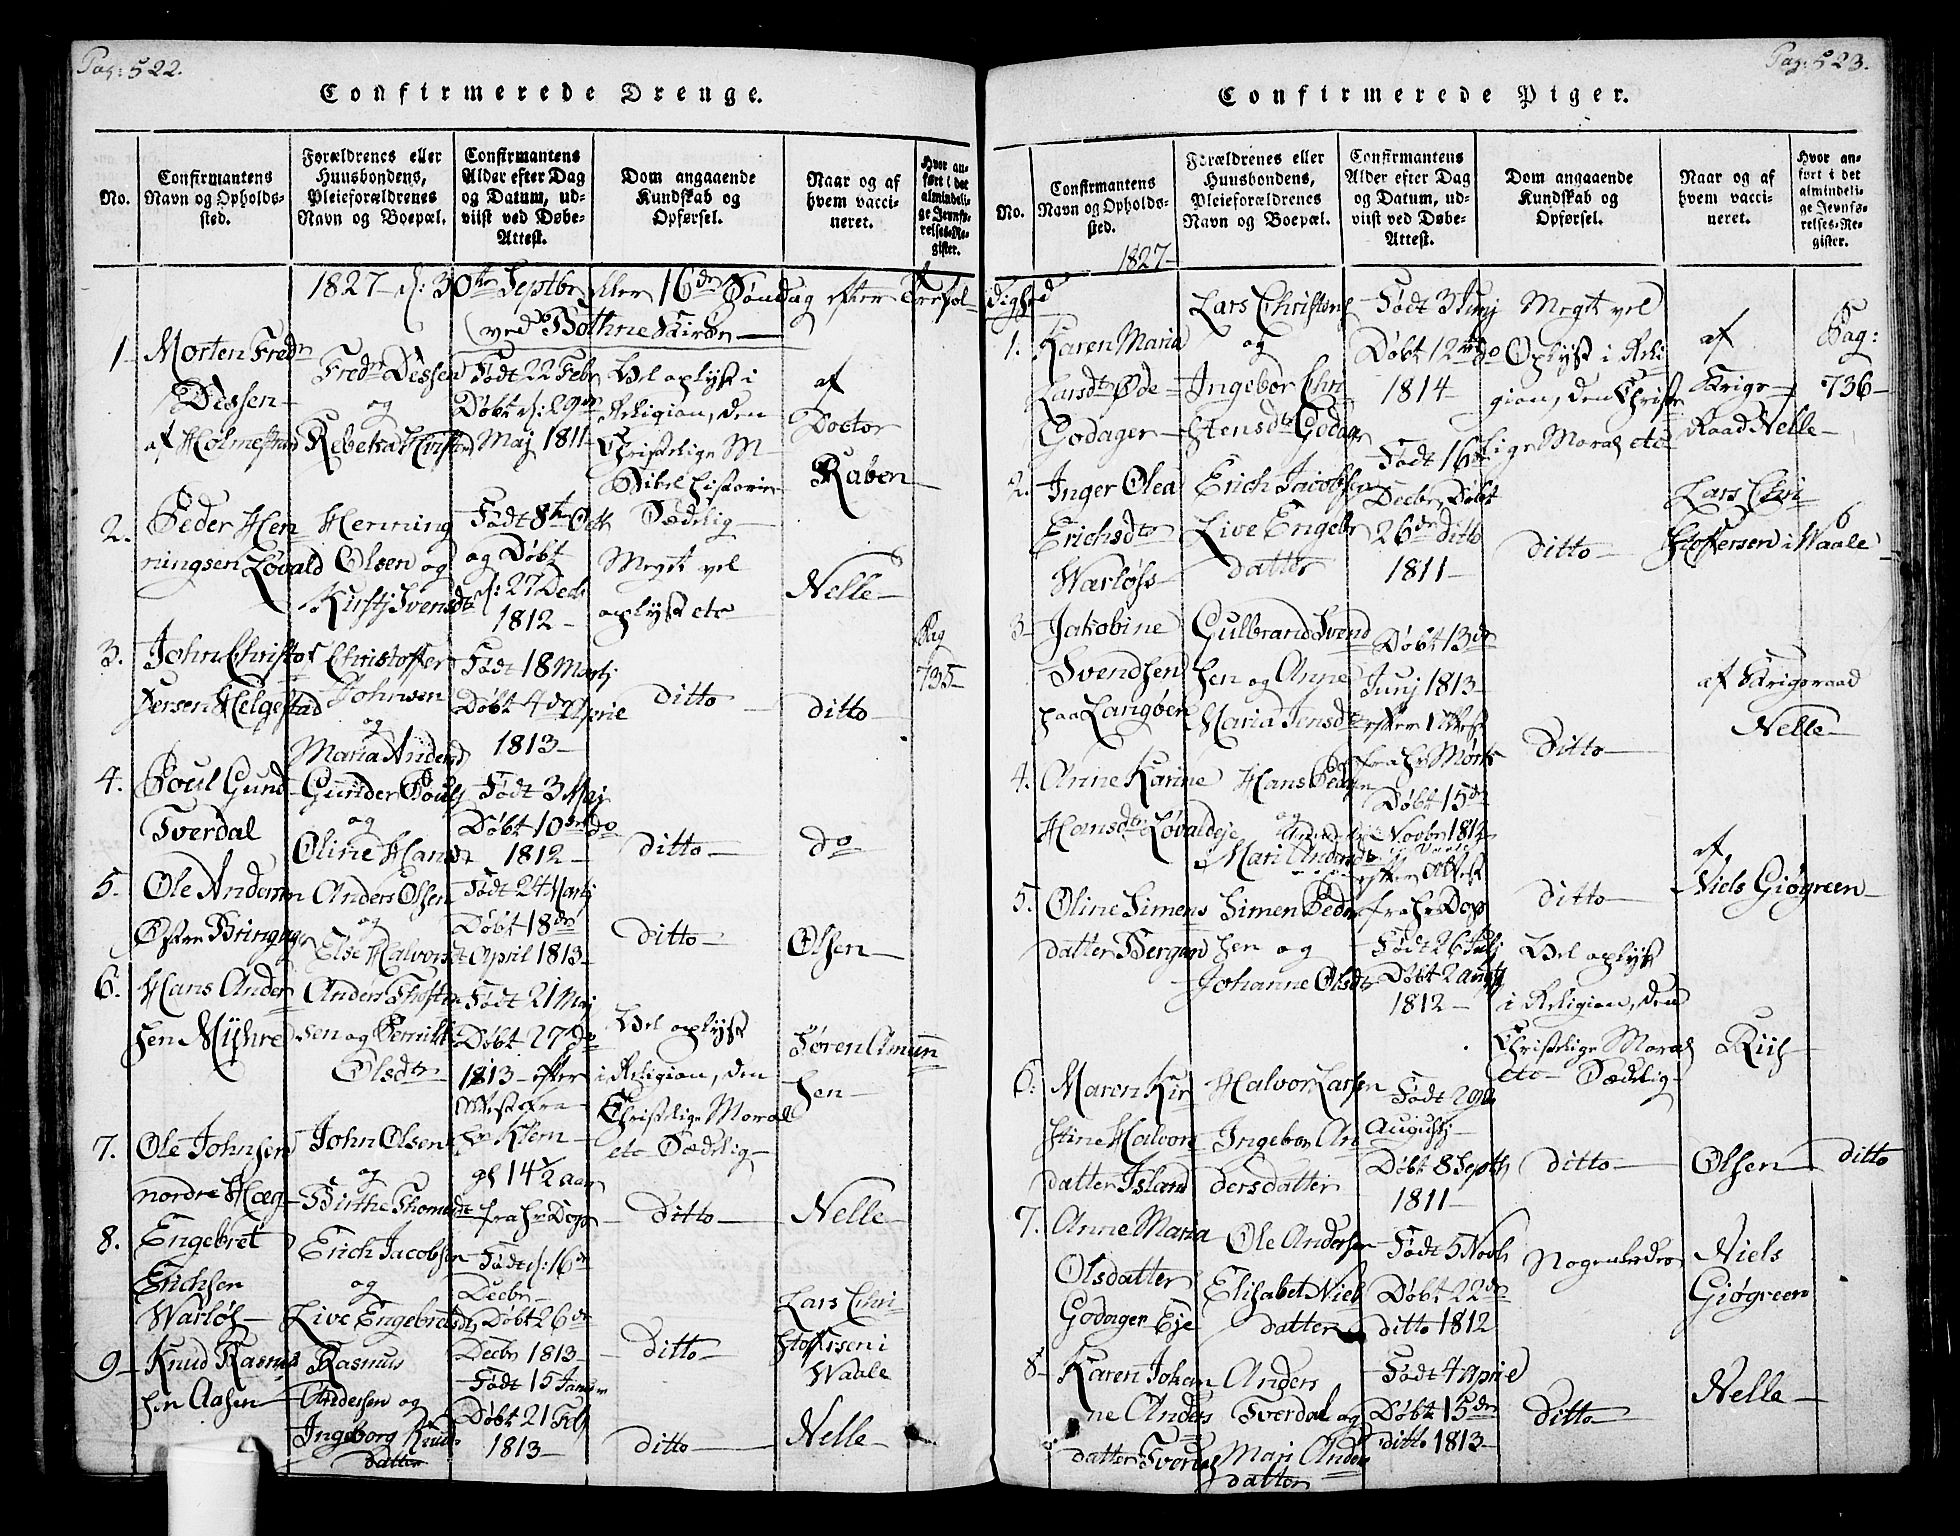 Pag: 522.
Confirmerede Drenge.
No.
Confirmantens
Navn og Opholds-
sted.
Forældrenes eller
Huusbondens,
Pleieforældrenes
Navn og Boepæl.
Confirmantens
Alder efter Dag
og Datum, ud-
viist ved Døbe-
Attest.
Dom angaaende
Kundskab og
Opførsel.
Naar og af
hvem vacci-
neret.
Hvor an-
ført i det
almindeli-
ge Jevnfø-
relses-Re-
gister.
1827 d: 30te Septbr eller 16de Søndag efter Trefol-
(ved Bothne Kirke
1 Morten Fredr
Dessen
af Holmestrand
Fredr Dessen
og
Rebekka
Født 22 Febr
Døbt d: 29de
Maj 1811
Vel oplyst i
Religion, den
Christelige M
Bibelhistorie
Sædelig
af
Doctor
Raben
2. Peder Hen
ningsen Løvald
Henning
Olsen og
Kirstj Svensdtr
Født 8de Octb
og Døbt
d: 27 Decb
1812
Meget vel
oplyst etc
Nelle
3. John Christof
fersen Helgestad
Christoffer
Johnsen
og
Maria Andersd
Født 18 Martj
Døbt 4de Aprie
1813
ditto
ditto
Pag
735
4. Poul Gund
Tverdal
Gunder Pouls
og
Oline Hansd
Født 3 Maj
Døbt 10de do
1812
ditto
do
5. Ole Andersen
Østre Bringag
Anders Olsen
og
Else Halvorsd
Født 24 Martj
Døbt 18de
April 1813
ditto
Olsen
6. Hans Ander
sen Myhre
Anders Thoste
sen og Berritte
Olsdtr
Født 21 Maj
Døbt 27 do
1813 efter
Attest fra
Hr Klem
Vel oplyst
i Religion, den
Christelige Moral
etc Sædelig
Søren Amun
sen
7. Ole Johnsen
nordre Hæg
John Olsen
og
Birthe Thomasdt
gl 14½ aar
fra Hr Dop
Ditto
Nelle
8. Engebret
Erichsen
Warløs
Erich Jacobsen
og
Live Engebretsdt
Født d: 16de
Decbr
Døbt 26de
Decbr 1813
Ditto
Lars Chri
stoffersen i
Waale
9 Knud Rasmus
sen Aasen
Rasmus
Andersen og
Ingeborg Knuds
datter
Født 15 Januar
Døbt 21 Feb
1813
ditto
Nelle
Pag: 523.
Confirmerede Piger.
No.
Confirmantens
Navn og Opholds-
sted.
1827
Forældrenes eller
Huusbondens,
Pleieforældrenes
Navn og Boepæl.
Confirmantens
Alder efter Dag
og Datum, ud-
viist ved Døbe-
Attest.
Dom angaaende
Kundskab og
Opførsel.
Naar og af
hvem vacci-
neret.
Hvor an-
ført i det
almindeli-
ge Jevnfø-
relses-Re-
gister.
dighed
1. Karen Maria
Larsdtr Øde
Godager
Lars Christens
og
Ingebor Chri
stensdtr Godager
Født 3 Junj
Døbt 12te do
1814
Megt vel
Oplyst i Reli
gion, den Christe
lige Moral etc
af
Krigs
Raad Nelle
Pag:
736
2. Inger Olea
Erichsdtr
Warløss
Erich Jacobsen
Live Engebr
datter
Født 16de
Decbr Døbt
26de ditto
1811
ditto
Lars Chri
stoffersen i Waale
3 Jakobine
Svendsen
paa Langøen
Gulbrand Svend
sen og Anne
Maria Jensdtr
Døbt 13de
Junj 1813
efter Attest
fra Hr Mørk
Ditto
af Krigsraad
Nelle
4. Anne Karine
Hansdtr Løvaldeje
Hans Peders
og
Mari Andersdt
Døbt 15de
Novbr 1812
efter Attest
fra Hr Dop
ditto
af
Niels Giøgreen
5. Oline Simens
datter Bergan
Simen Peder
sen og
Johanne Olsdtr
Født 26 Julj
Døbt 2 Augustj
1812
Vel oplyst
i Religion, den
Christelige Moral
etc Sædelig
Riis
6. Maren Kir
stine Halvors
datter Island
Halvor Larsen
Ingebor An
dersdatter
Født 29de
Augustj
Døbt 8 Septb
1811
ditto
Olsen
ditto
7. Anne Maria
Olsdatter
Godager Eje
Ole Andersen
Elisabet Niels
datter
Født 5 Novb
Døbt 22de
ditto 1812
Nogenledes
Niels
Giøgreen
8 Karen Johan
ne Anders
datter Tverdal
Anders
Tverdal og
Mari Anders
datter
Født 4 Aprie
Døbt 15de
ditto 1813
ditto
Nelle